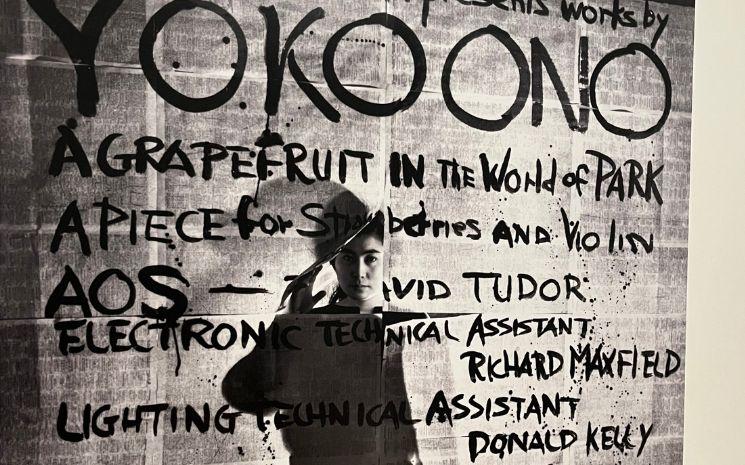 presents works by
YOKO ONO
A GRAPEFRUIT IN THE WORLD of PARK
A PIECE for Strawberries AND VIOLIN
AOS — DAVID TUDOR
ELECTRONIC TECHNICAL ASSISTANT
RICHARD MAXFIELD
LIGHTING TECHNICAL ASSISTANT
DONALD KELLY